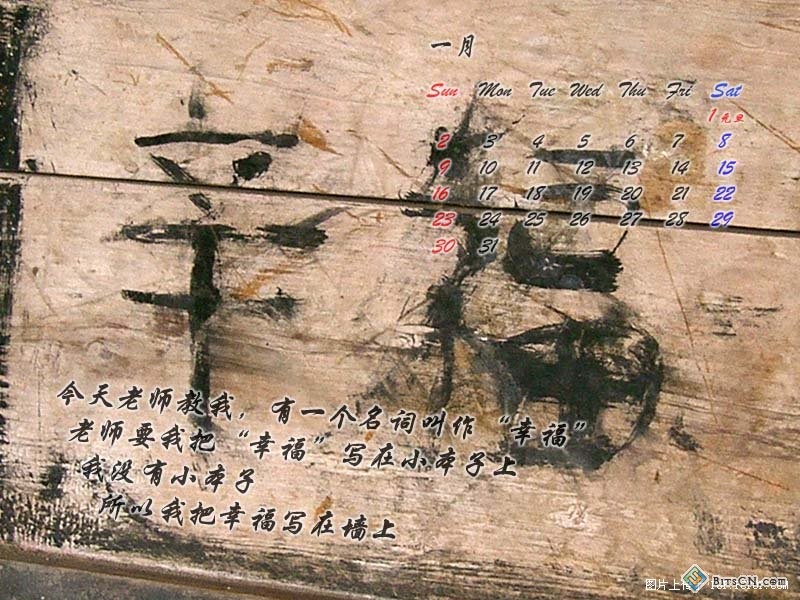 一月
Sun Mon Tue Wed Thu Fri Sat
1 元旦
2 3 4 5 6 7 8
9 10 11 12 13 14 15
16 17 18 19 20 21 22
23 24 25 26 27 28 29
30 31
幸福
今天老师教我，有一个名词叫作“幸福”
老师要我把“幸福”写在小本子上
我没有小本子
所以我把幸福写在墙上
图片上传于
BitsCN.com